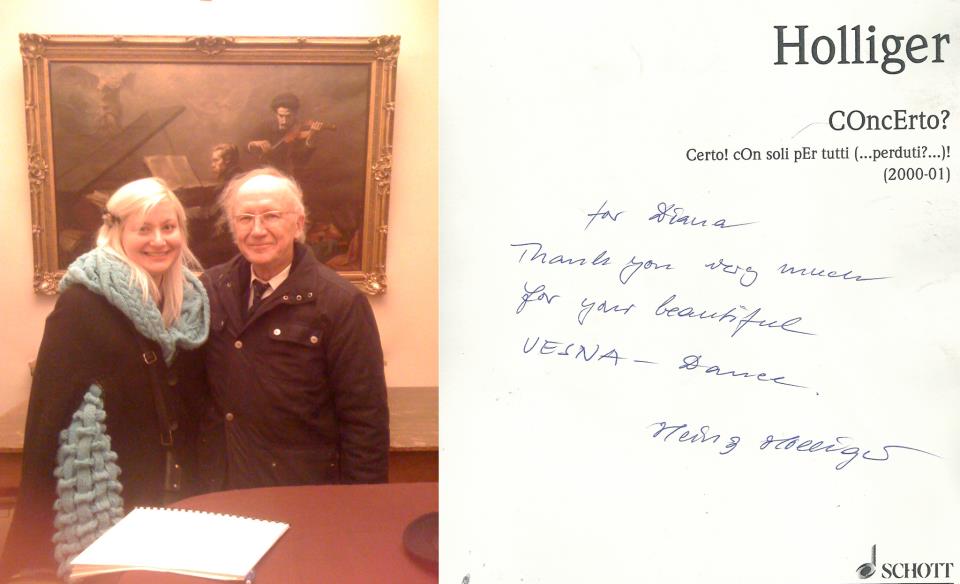 Holliger
COncErto?
Certo! cOn soli pEr tutti (...perduti?...)!
(2000-01)
for Diana
Thank you very much
for your beautiful
VESNA – Dance.
Heinz Holliger
SCHOTT